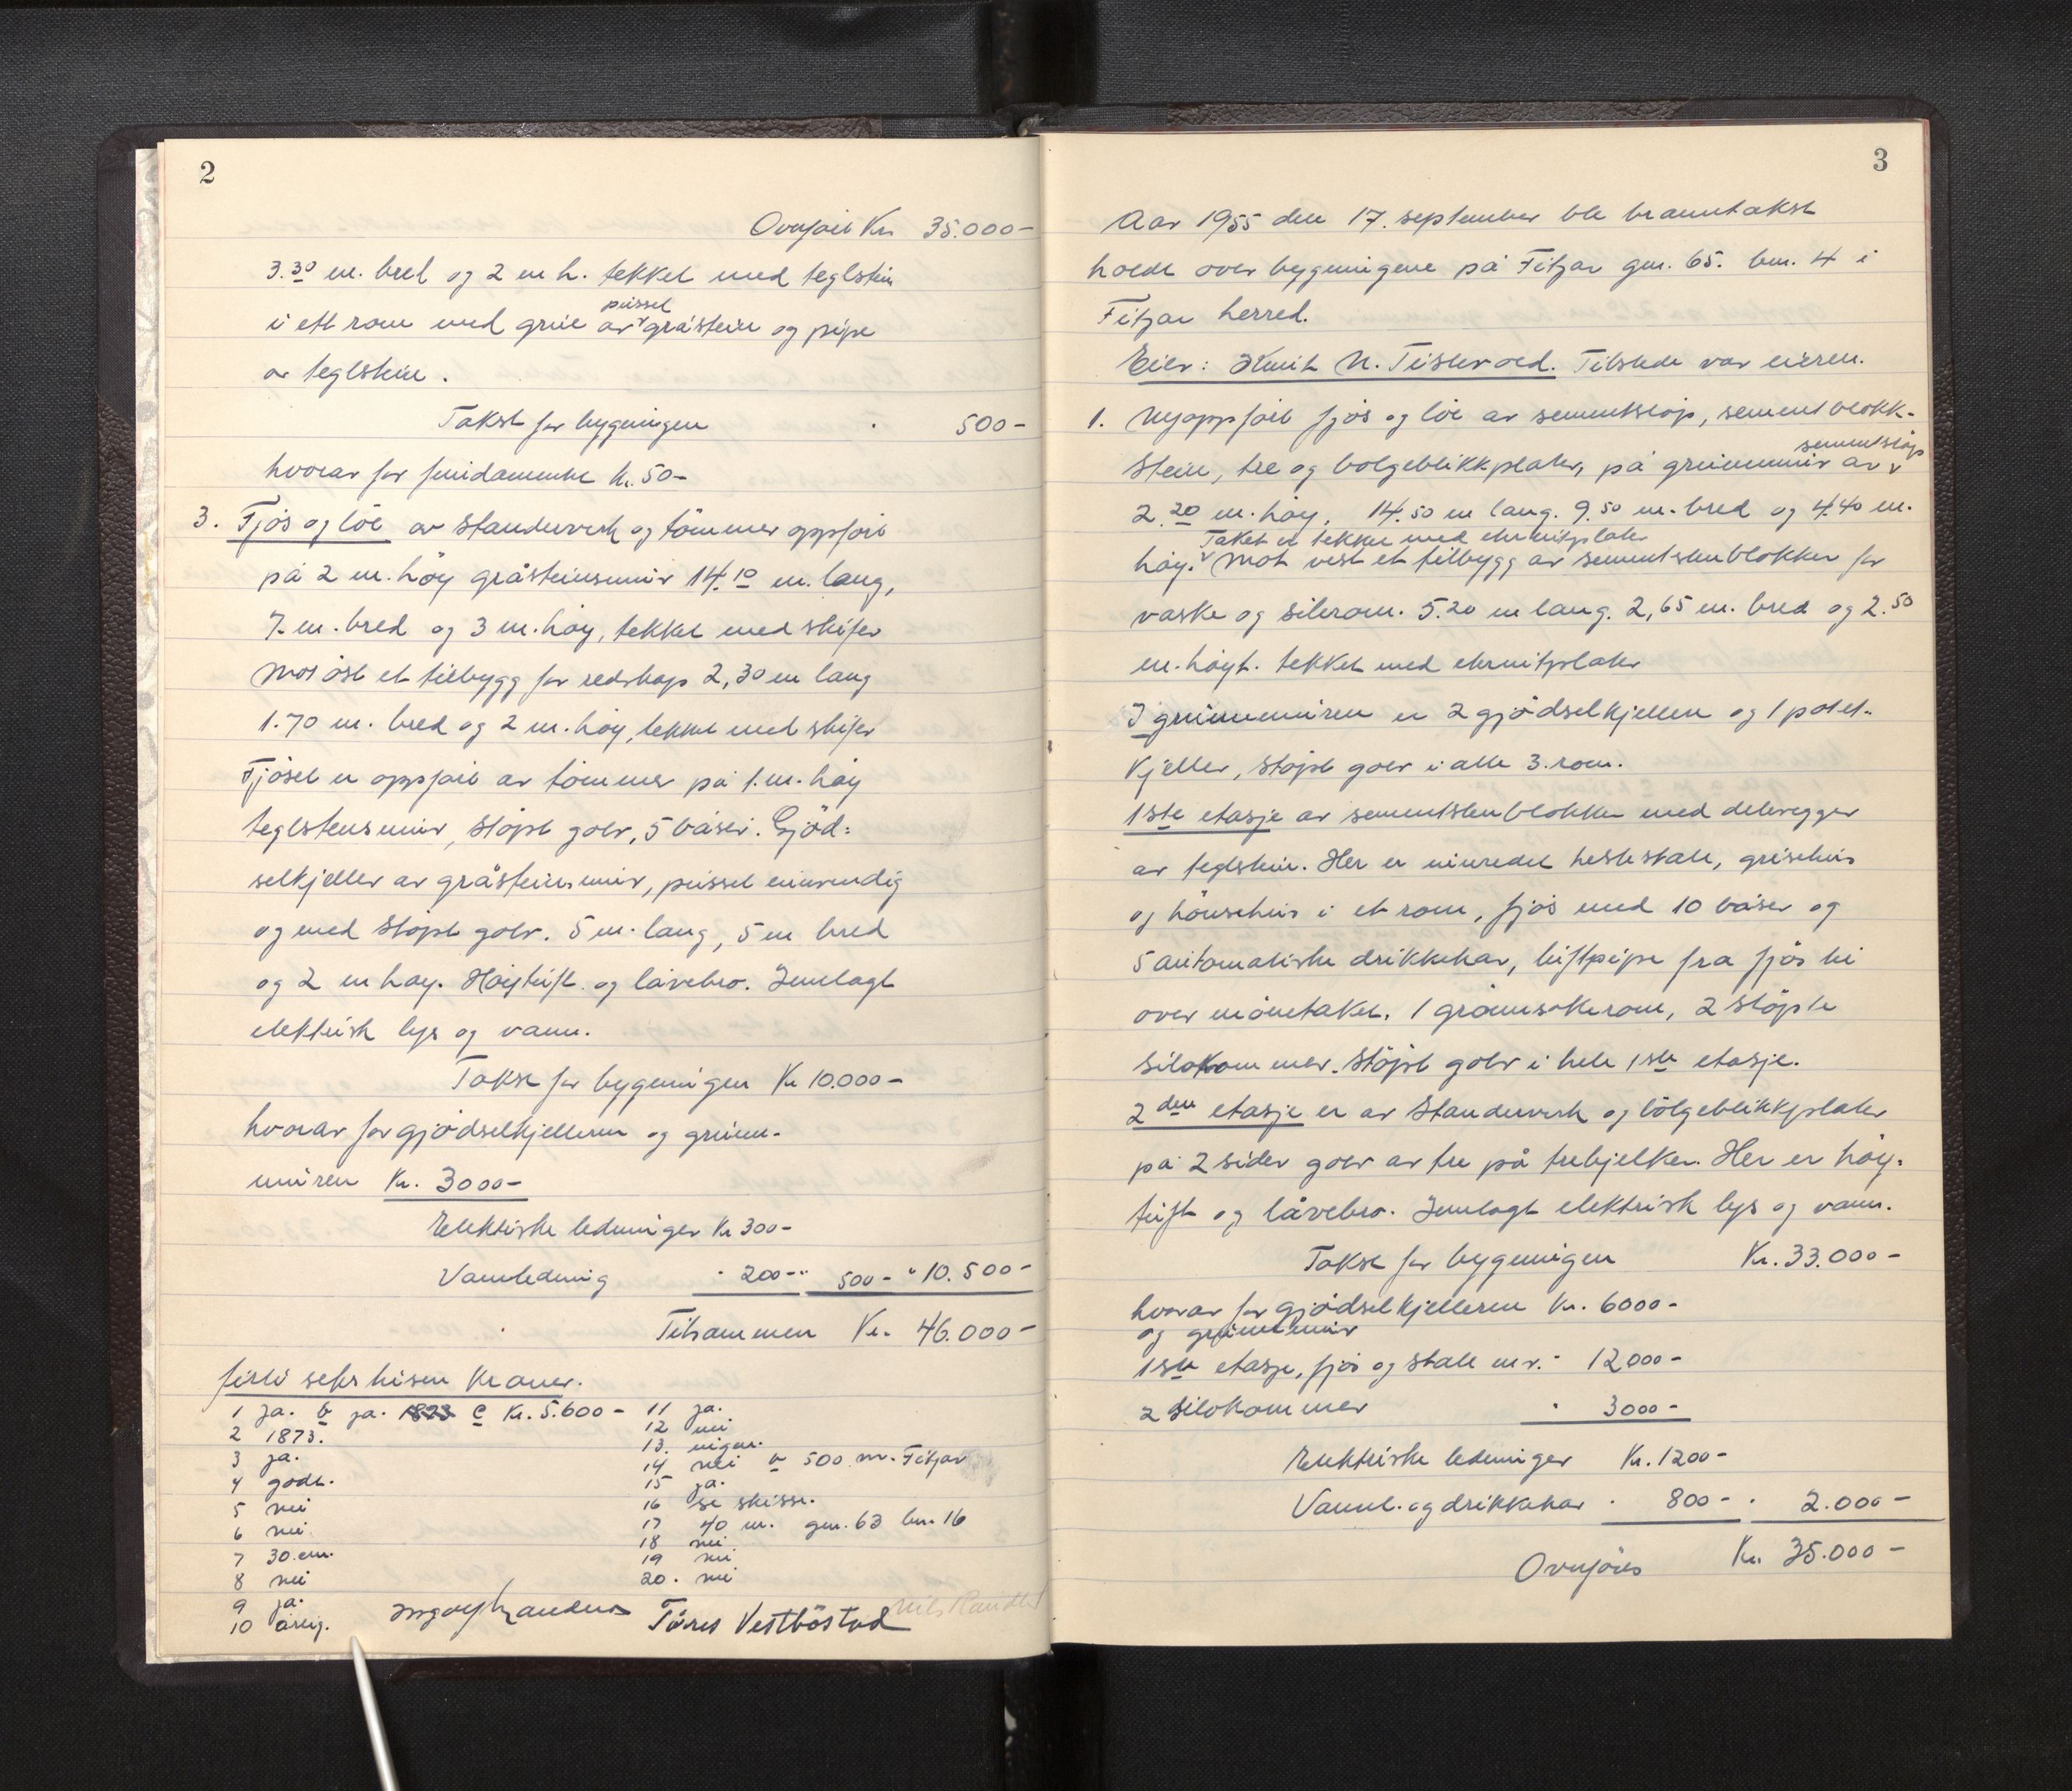 2
Overført Kr. 35.000-
3.30 m. bred og 2 m h. tekket med teglstein
pusset
i ett rom med grue av gråstein og pipe
av teglstein.
Takst for bygningen " 500-
hvorav for fundamentet Kr. 50-
3. Fjøs og löe av Standerverk og tömmer oppfört
på 2 m. höy gråsteinsmur 14.10 m. lang,
7. m. bred og 3 m. höy, tekket med skifer
Mot öst et tilbygg for redskap 2,30 m lang
1.70 m. bred og 2 m. höy, tekket med skifer
Fjöset er oppfört av tömmer på 1. m. höy
teglstensmur, stöpt golv, 5 båser. Gjöd-
selkjeller av gråsteinsmur, pusset innvendig
og med stöpt golv. 5 m. lang, 5 m bred
og 2 m höy. Höytrift og låvebro. Innlagt
elektrisk lys og vann.
Takst for bygningen Kr 10.000-
hvorav for gjödselkjelleren og grunn-
muren Kr. 3000-
Elektriske ledninger Kr 300-
Vannledning " 200- " 500- " 10.500-
Tilsammen Kr. 46.000-
förti seks tusen Kroner.
1 Ja. b ja. 1823 c Kr. 5.600-
2 1873.
3 ja.
4 godt.
5 nei
6 nei
7 30 cm.
8 nei
9 ja.
10 årlig.
11 ja.
12 nei
13. ingen.
14 nei b 500 m. Fitjar
15 ja.
16 se skisse.
17 40 m. gnr. 63 bnr. 16
18 nei
19 nei
20. nei
Töres Vestböstad
3
Aar 1955 den 17. september ble branntakst
holdt over bygningene på Fitjar gnr. 65. bnr. 4 i
Fitjar herred.
Eier: Knut N. Tislevoll. Tilstede var eieren.
1. Nyoppfört fjös og löe av sementstöp, sementblokk-
sementstöp
stein, tre og bölgeblikkplater, på grunnmur av
2.20 m. höy, 14.50 m lang. 9.50 m. bred og 4.40 m.
Taket er tekket med eternitplater
höy. Mot vest et tilbygg av sementstenblokker for
vaske og silerom. 5.20 m lang. 2,65 m. bred og 2.50
m. höyt. tekket med eternitplater
I grunnmuren er 2 gjödselkjellere og 1 potet-
kjeller, stöpt golv i alle 3. rom.
1ste etasje av sementstenblokker med delevegger
av teglstein. Her er innredet hestestall, grisehus
og hönsehus i et rom, fjös med 10 båser og
5 automatiske drikkekar, luftpipe fra fjös til
over mönetaket. 1 grönnsakerom, 2 stöpte
silokommer. Stöpt golv i hele 1ste etasje.
2den etasje er av Standerverk og bölgeblikkplater
på 2 sider golv av tre på trebjelker. Her er höy-
trift og låvebro. Innlagt elektrisk lys og vann.
Takst for bygningen Kr. 33.000-
hvorav for gjödselkjelleren Kr. 6000-
og grunnmur
1ste etasje, fjös og stall m.v. " 12000-
2 silokommer " 3000-
Elektriske ledninger Kr. 1200-
Vannl. og drikkekar " 800- " 2.000-
Overföres Kr. 35.000-